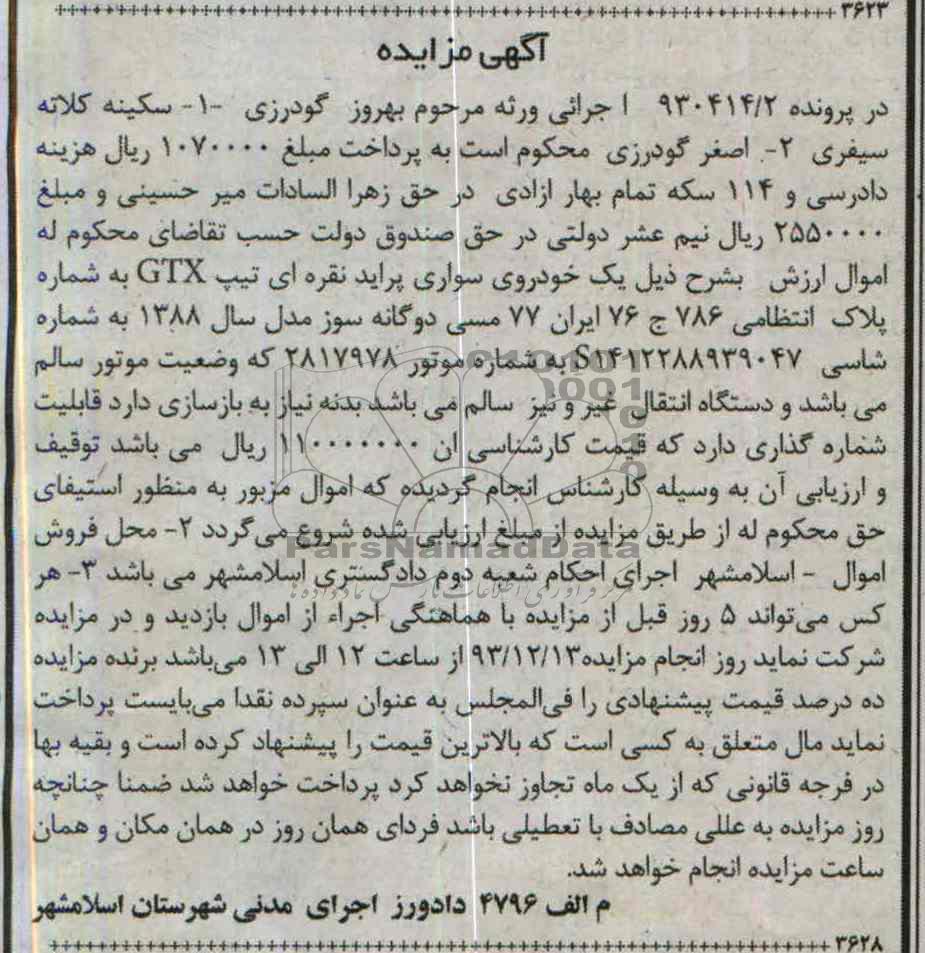 ۳۶۲۳
آگهی مزایده
در پرونده ۹۳۰۴۱۴/۲ ا جرائی ورثه مرحوم بهروز گودرزی -۱- سکینه کلاته
سیفری ۲- اصغر گودرزی محکوم است به پرداخت مبلغ ۱۰۷۰۰۰۰ ریال هزینه
دادرسی و ۱۱۴ سکه تمام بهار ازادی در حق زهرا السادات میر حسینی و مبلغ
۲۵۵۰۰۰۰ ریال نیم عشر دولتی در حق صندوق دولت حسب تقاضای محکوم له
اموال ارزش بشرح ذیل یک خودروی سواری پراید نقره ای تیپ GTX به شماره
پلاک انتظامی ۷۸۶ ج ۷۶ ایران ۷۷ مسی دوگانه سوز مدل سال ۱۳۸۸ به شماره
شاسی S۱۴۱۲۲۸۸۹۳۹۰۴۷ به شماره موتور ۲۸۱۷۹۷۸ که وضعیت موتور سالم
می باشد و دستگاه انتقال غیر و نیز سالم می باشد بدنه نیاز به بازسازی دارد قابلیت
شماره گذاری دارد که قیمت کارشناسی ان ۱۱۰۰۰۰۰۰۰ ریال می باشد توقیف
و ارزیابی آن به وسیله کارشناس انجام گردیده که اموال مزبور به منظور استیفای
حق محکوم له از طریق مزایده از مبلغ ارزیابی شده شروع می‌گردد ۲- محل فروش
ParsNamadData
اموال - اسلامشهر اجرای احکام شعبه دوم دادگستری اسلامشهر می باشد ۳- هر
کس می‌تواند ۵ روز قبل از مزایده با هماهنگی اجراء از اموال بازدید و در مزایده
شرکت نماید روز انجام مزایده۹۳/۱۲/۱۳ از ساعت ۱۲ الی ۱۳ می‌باشد برنده مزایده
ده درصد قیمت پیشنهادی را فی‌المجلس به عنوان سپرده نقدا می‌بایست پرداخت
نماید مال متعلق به کسی است که بالاترین قیمت را پیشنهاد کرده است و بقیه بها
در فرجه قانونی که از یک ماه تجاوز نخواهد کرد پرداخت خواهد شد ضمنا چنانچه
روز مزایده به عللی مصادف با تعطیلی باشد فردای همان روز در همان مکان و همان
ساعت مزایده انجام خواهد شد.
م الف ۴۷۹۶ دادورز اجرای مدنی شهرستان اسلامشهر
۳۶۲۸